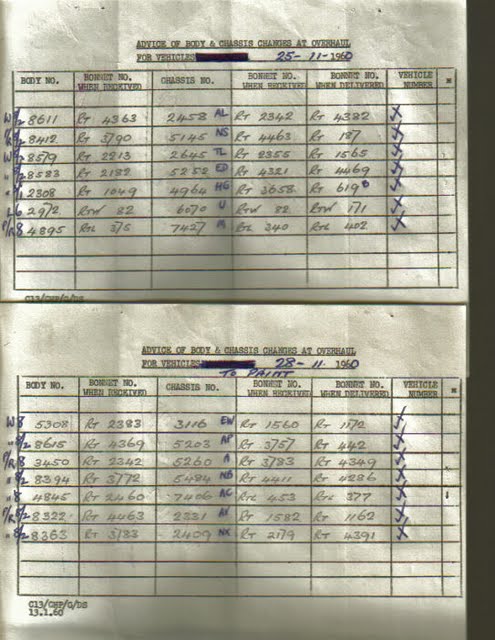 ADVICE OF BODY & CHASSIS CHANGES AT OVERHAUL
FOR VEHICLES 25-11-1960
BODY NO. BONNET NO. WHEN RECEIVED CHASSIS NO. BONNET NO. WHEN RECEIVED BONNET NO. WHEN DELIVERED VEHICLE NUMBER
8611 RT 4363 2458 AL RT 2342 RT 4382 X
8412 RT 3790 5145 NS RT 4463 RT 187 X
8579 RT 2213 2645 TL RT 2355 RT 1565 X
8583 RT 2182 5252 ED RT 4321 RT 4469 X
2308 RT 1049 4964 HG RT 3658 RT 619 X
L6 2972 RTW 82 6070 U RTW 82 RTW 171 X
P/R 8 4895 RTL 375 7427 RTL 340 RTL 402 X
C13/CHP/G/DS
ADVICE OF BODY & CHASSIS CHANGES AT OVERHAUL
FOR VEHICLES 28-11-1960
TO PAINT
BODY NO. BONNET NO. WHEN RECEIVED CHASSIS NO. BONNET NO. WHEN RECEIVED BONNET NO. WHEN DELIVERED VEHICLE NUMBER
W 8 5308 RT 2383 3116 EW RT 1560 RT 1172 X
" 8/2 8615 RT 4369 5203 AP RT 3757 RT 442 X
P/R 8 3450 RT 2342 5260 A RT 3783 RT 4349 X
" 8/2 8394 RT 3772 5484 NB RT 4411 RT 4286 X
" 8 4845 RT 2460 7406 AC RTL 453 RTL 377 X
P/R 8/2 8322 RT 4463 2331 AY RT 1582 RT 1162 X
" 8/2 8363 RT 3183 2409 NK RT 2179 RT 4391 X
C13/CHP/G/DS
13.1.60